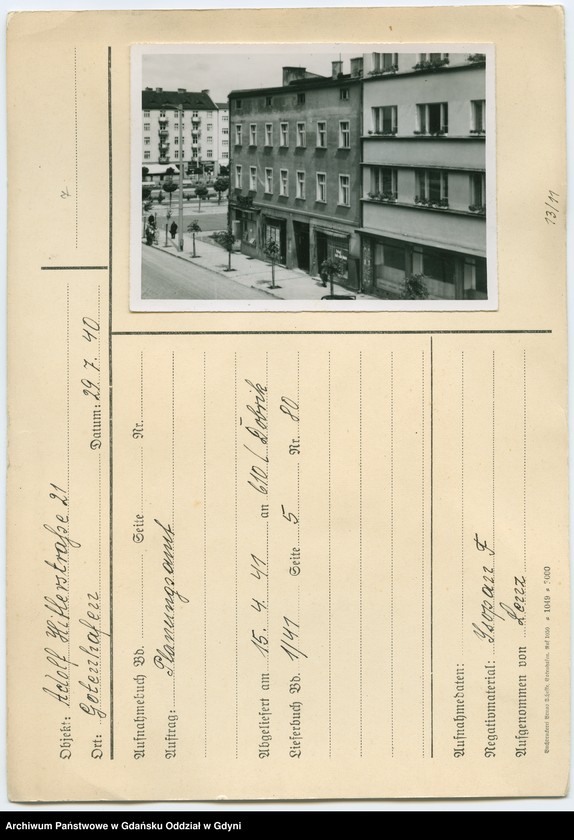 Objekt: Adolf Hitlerstraße 21
Ort: Gotenhafen Datum: 29. 7. 40
7
Aufnahmebuch Bd. Seite Nr.
Auftrag: Planungsamt
Abgeliefert am 15. 4. 41 an 610 / Dobrik
Lieferbuch Bd. 1/41 Seite 5 Nr. 80
Aufnahmedaten:
Negativmaterial: Isopan F
Aufgenommen von Lenz
1049 5000
13/11
Archiwum Państwowe w Gdańsku Oddział w Gdyni